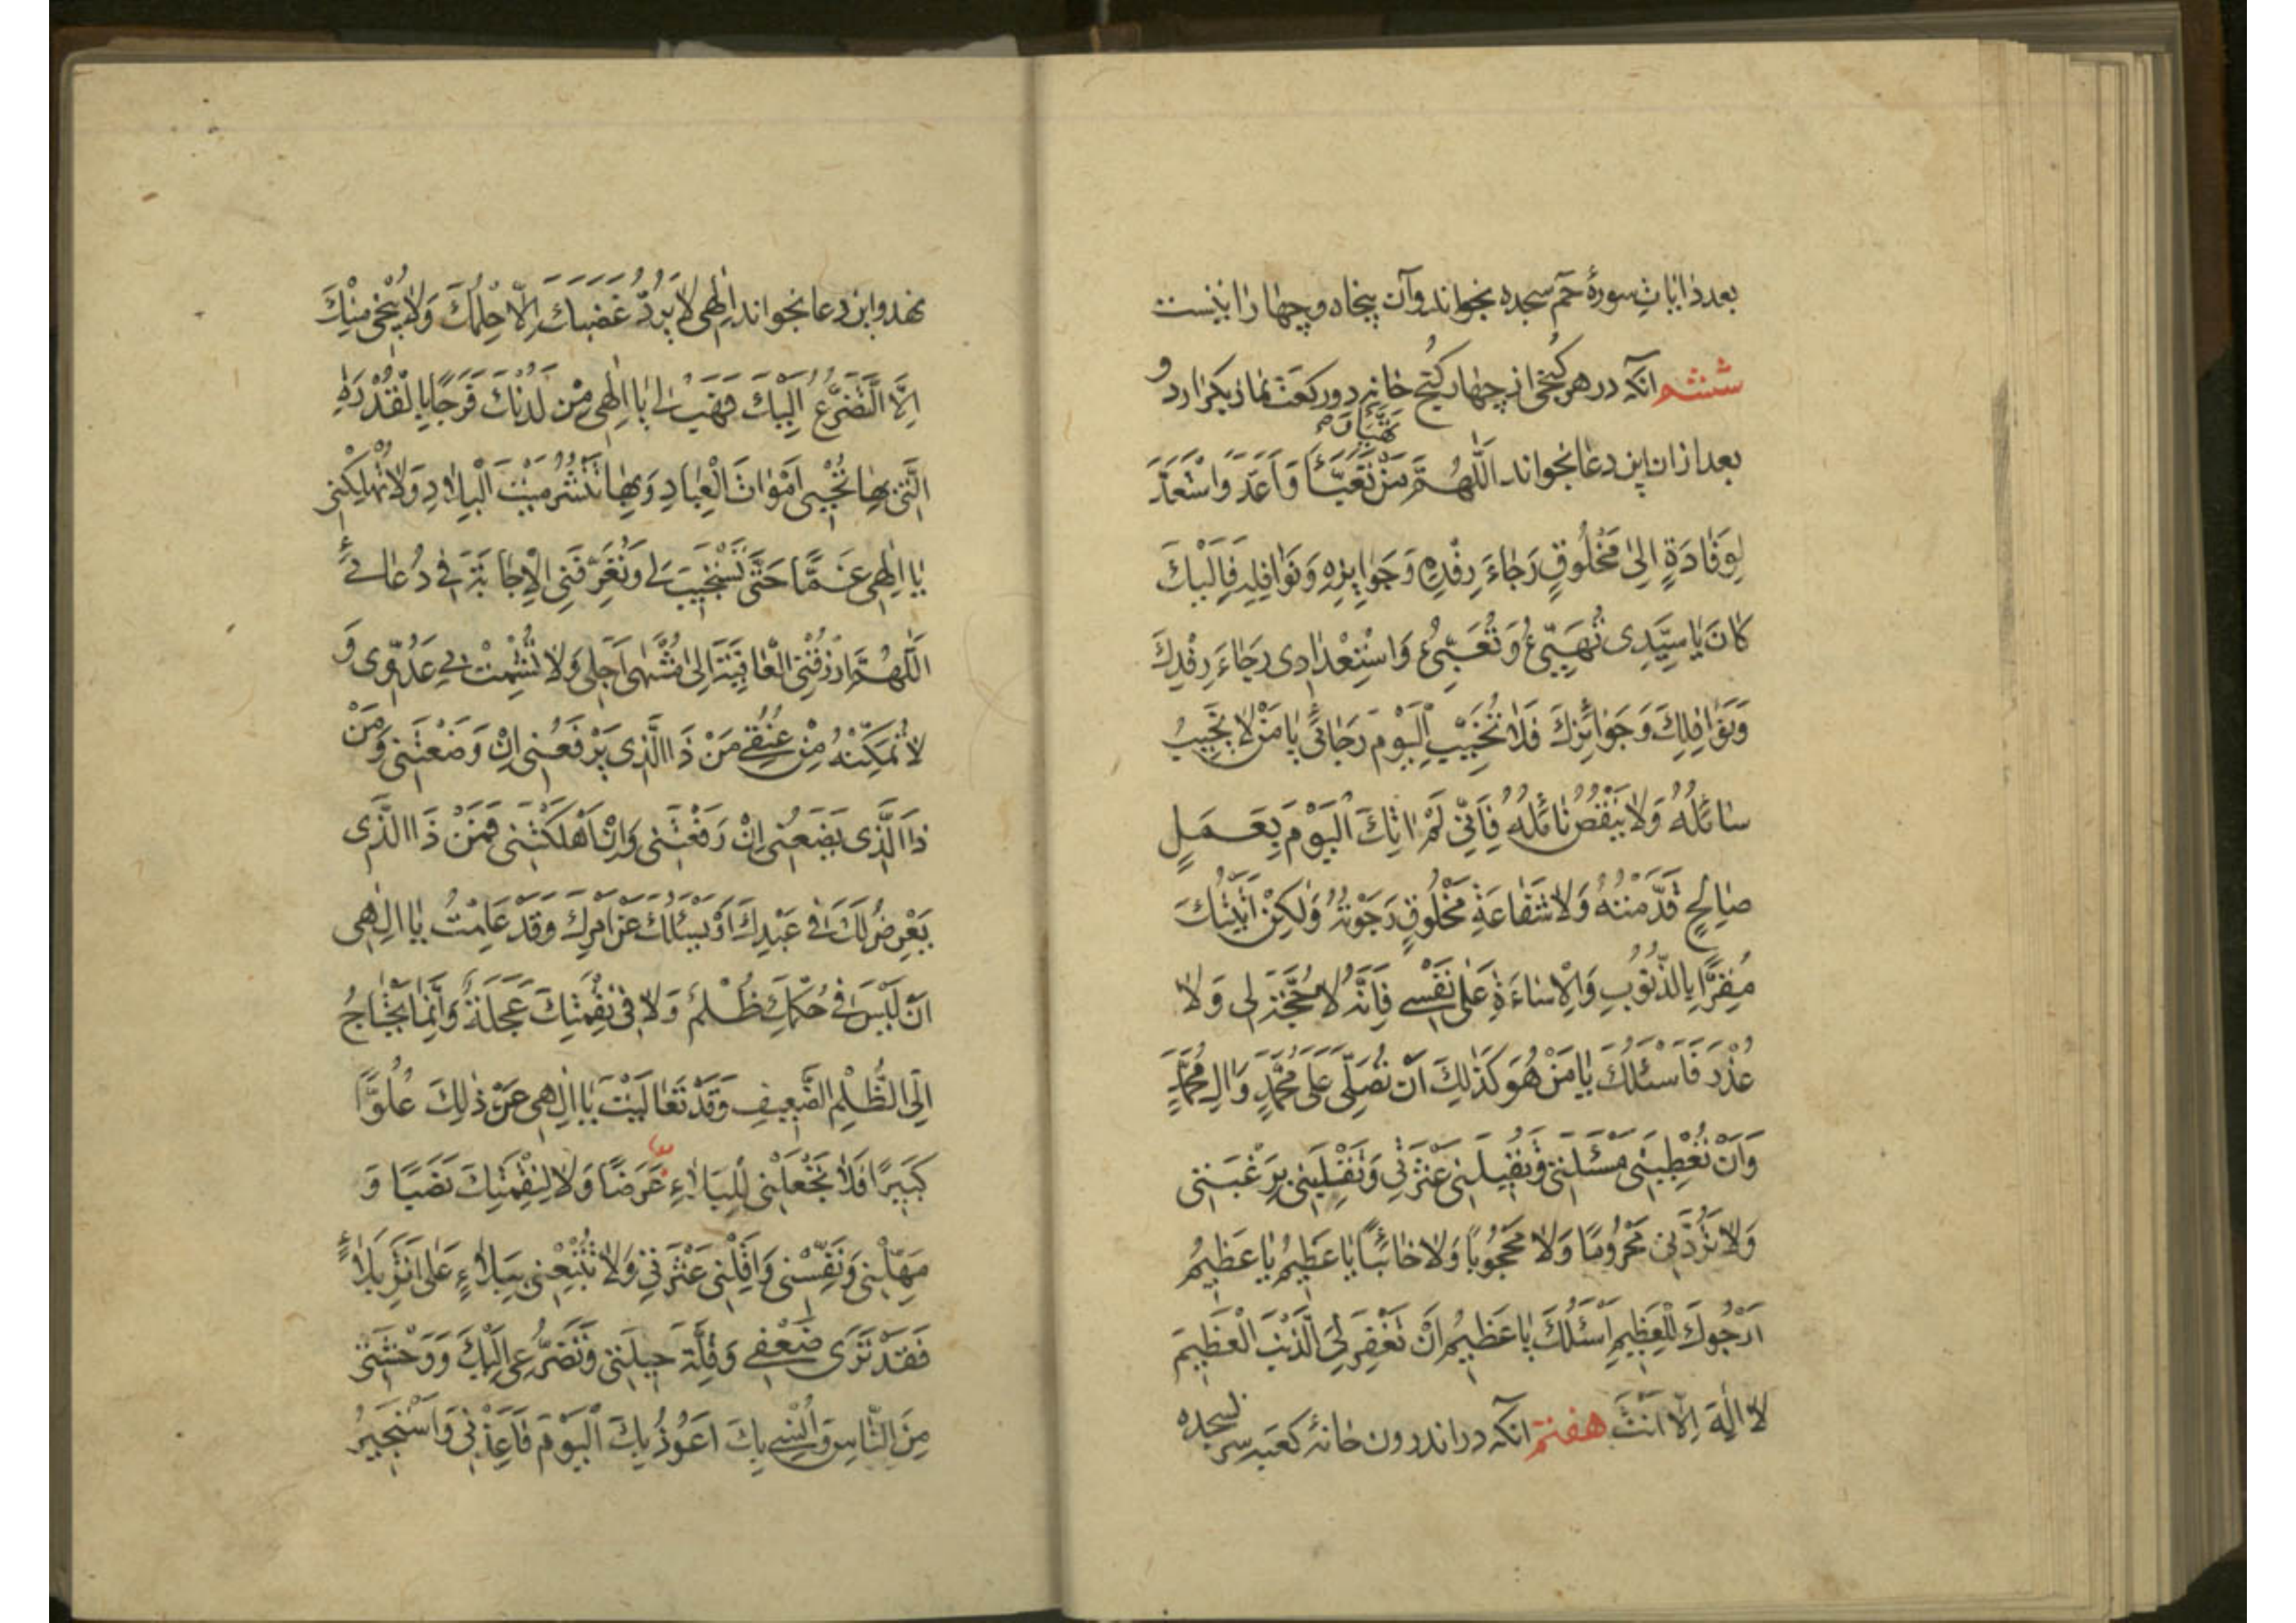 بعدد ایات سورهٔ حم سجده بخواند وآن پنجاه و چهار ایتست
ششم انکه در هر کنجی از چهار کنج خانه دو رکعت نماز بگزارد و
تَهَیَّأَ وَ
بعد از ان این دعا بخواند اَللّٰهُمَّ مَنْ تَعَبَّأَ وَاَعَدَّ وَاسْتَعَدَّ
لِوَفَادَةٍ اِلیٰ مَخْلُوقٍ رَجَاءَ رِفْدِهِ وَجَوٰایِزِهِ وَنَوٰافِلِهِ فَاِلَیْكَ
كَانَ یٰا سَیِّدِی تَهَیِّئُ وَتَعَبِّئُ وَاسْتِعْدٰادِی رَجَاءَ رِفْدِكَ
وَنَوٰافِلِكَ وَجَوٰائِزِكَ فَلاٰ تُخَیِّبِ الْیَوْمَ رَجَائِی یٰا مَنْ لاٰ یَخِیبُ
سٰائِلُهُ وَلاٰ یَنْقُصُ نٰائِلُهُ فَاِنِّی لَمْ اٰتِكَ الْیَوْمَ بِعَمَلٍ
صٰالِحٍ قَدَّمْتُهُ وَلاٰ شَفٰاعَةِ مَخْلُوقٍ رَجَوْتُهُ وَلٰكِنْ اَتَیْتُكَ
مُقِرًّا بِالذُّنُوبِ وَالْاِسٰاءَةِ عَلیٰ نَفْسِی فَاِنَّهُ لاٰ حُجَّةَ لِی وَلاٰ
عُذْرَ فَاَسْئَلُكَ یٰا مَنْ هُوَ كَذٰلِكَ اَنْ تُصَلِّیَ عَلیٰ مُحَمَّدٍ وَاٰلِ مُحَمَّدٍ
وَاَنْ تُعْطِیَنِی مَسْئَلَتِی وَتُقِیلَنِی عَثْرَتِی وَتَقْلِبَنِی بِرَغْبَتِی
وَلاٰ تَرُدَّنِی مَحْرُومًا وَلاٰ مَحْجُوبًا وَلاٰ خٰائِبًا یٰا عَظِیمُ یٰا عَظِیمُ
اَرْجُوكَ لِلْعَظِیمِ اَسْئَلُكَ یٰا عَظِیمُ اَنْ تَغْفِرَ لِیَ الذَّنْبَ الْعَظِیمَ
لاٰ اِلٰهَ اِلاّٰ اَنْتَ هفتم انکه در اندرون خانهٔ کعبه سر بسجده
نهد و این دعا بخواند اِلٰهِی لاٰ یَرُدُّ غَضَبَكَ اِلاّٰ حِلْمُكَ وَلاٰ یُنْجِی مِنْكَ
اِلَّا التَّضَرُّعُ اِلَیْكَ فَهَبْ لِی یٰا اِلٰهِی مِنْ لَدُنْكَ فَرَجًا بِالْقُدْرَةِ
الَّتِی بِهٰا تُحْیِی اَمْوٰاتَ الْعِبٰادِ وَبِهٰا تَنْشُرُ مَیْتَ الْبِلاٰدِ وَلاٰ تُهْلِكْنِی
یٰا اِلٰهِی غَمًّا حَتّٰی تَسْتَجِیبَ لِی وَتُعَرِّفَنِی الْاِجٰابَةَ فِی دُعٰائِی
اَللّٰهُمَّ ارْزُقْنِی الْعٰافِیَةَ اِلیٰ مُنْتَهیٰ اَجَلِی وَلاٰ تُشْمِتْ بِی عَدُوِّی وَ
لاٰ تُمَكِّنْهُ مِنْ عُنُقِی مَنْ ذَا الَّذِی یَرْفَعُنِی اِنْ وَضَعْتَنِی وَمَنْ
ذَا الَّذِی یَضَعُنِی اِنْ رَفَعْتَنِی وَاِنْ اَهْلَكْتَنِی فَمَنْ ذَا الَّذِی
یَعْرِضُ لَكَ فِی عَبْدِكَ اَوْ یَسْئَلُكَ عَنْ اَمْرِكَ وَقَدْ عَلِمْتُ یٰا اِلٰهِی
اَنْ لَیْسَ فِی حُكْمِكَ ظُلْمٌ وَلاٰ فِی نَقِمَتِكَ عَجَلَةٌ وَاِنَّمٰا یَحْتٰاجُ
اِلَی الظُّلْمِ الضَّعِیفُ وَقَدْ تَعٰالَیْتَ یٰا اِلٰهِی عَنْ ذٰلِكَ عُلُوًّا
كَبِیرًا فَلاٰ تَجْعَلْنِی لِلْبَلاٰءِ غَرَضًا وَلاٰ لِنِقْمَتِكَ نَصَبًا وَ
مَهِّلْنِی وَنَفِّسْنِی وَاَقِلْنِی عَثْرَتِی وَلاٰ تُتْبِعْنِی بِبَلاٰءٍ عَلیٰ اَثَرِ بَلاٰءٍ
فَقَدْ تَرٰی ضَعْفِی وَقِلَّةَ حِیلَتِی وَتَضَرُّعِی اِلَیْكَ وَوَحْشَتِی
مِنَ النّٰاسِ وَاُنْسِی بِكَ اَعُوذُ بِكَ الْیَوْمَ فَاَعِذْنِی وَاَسْتَجِیرُ